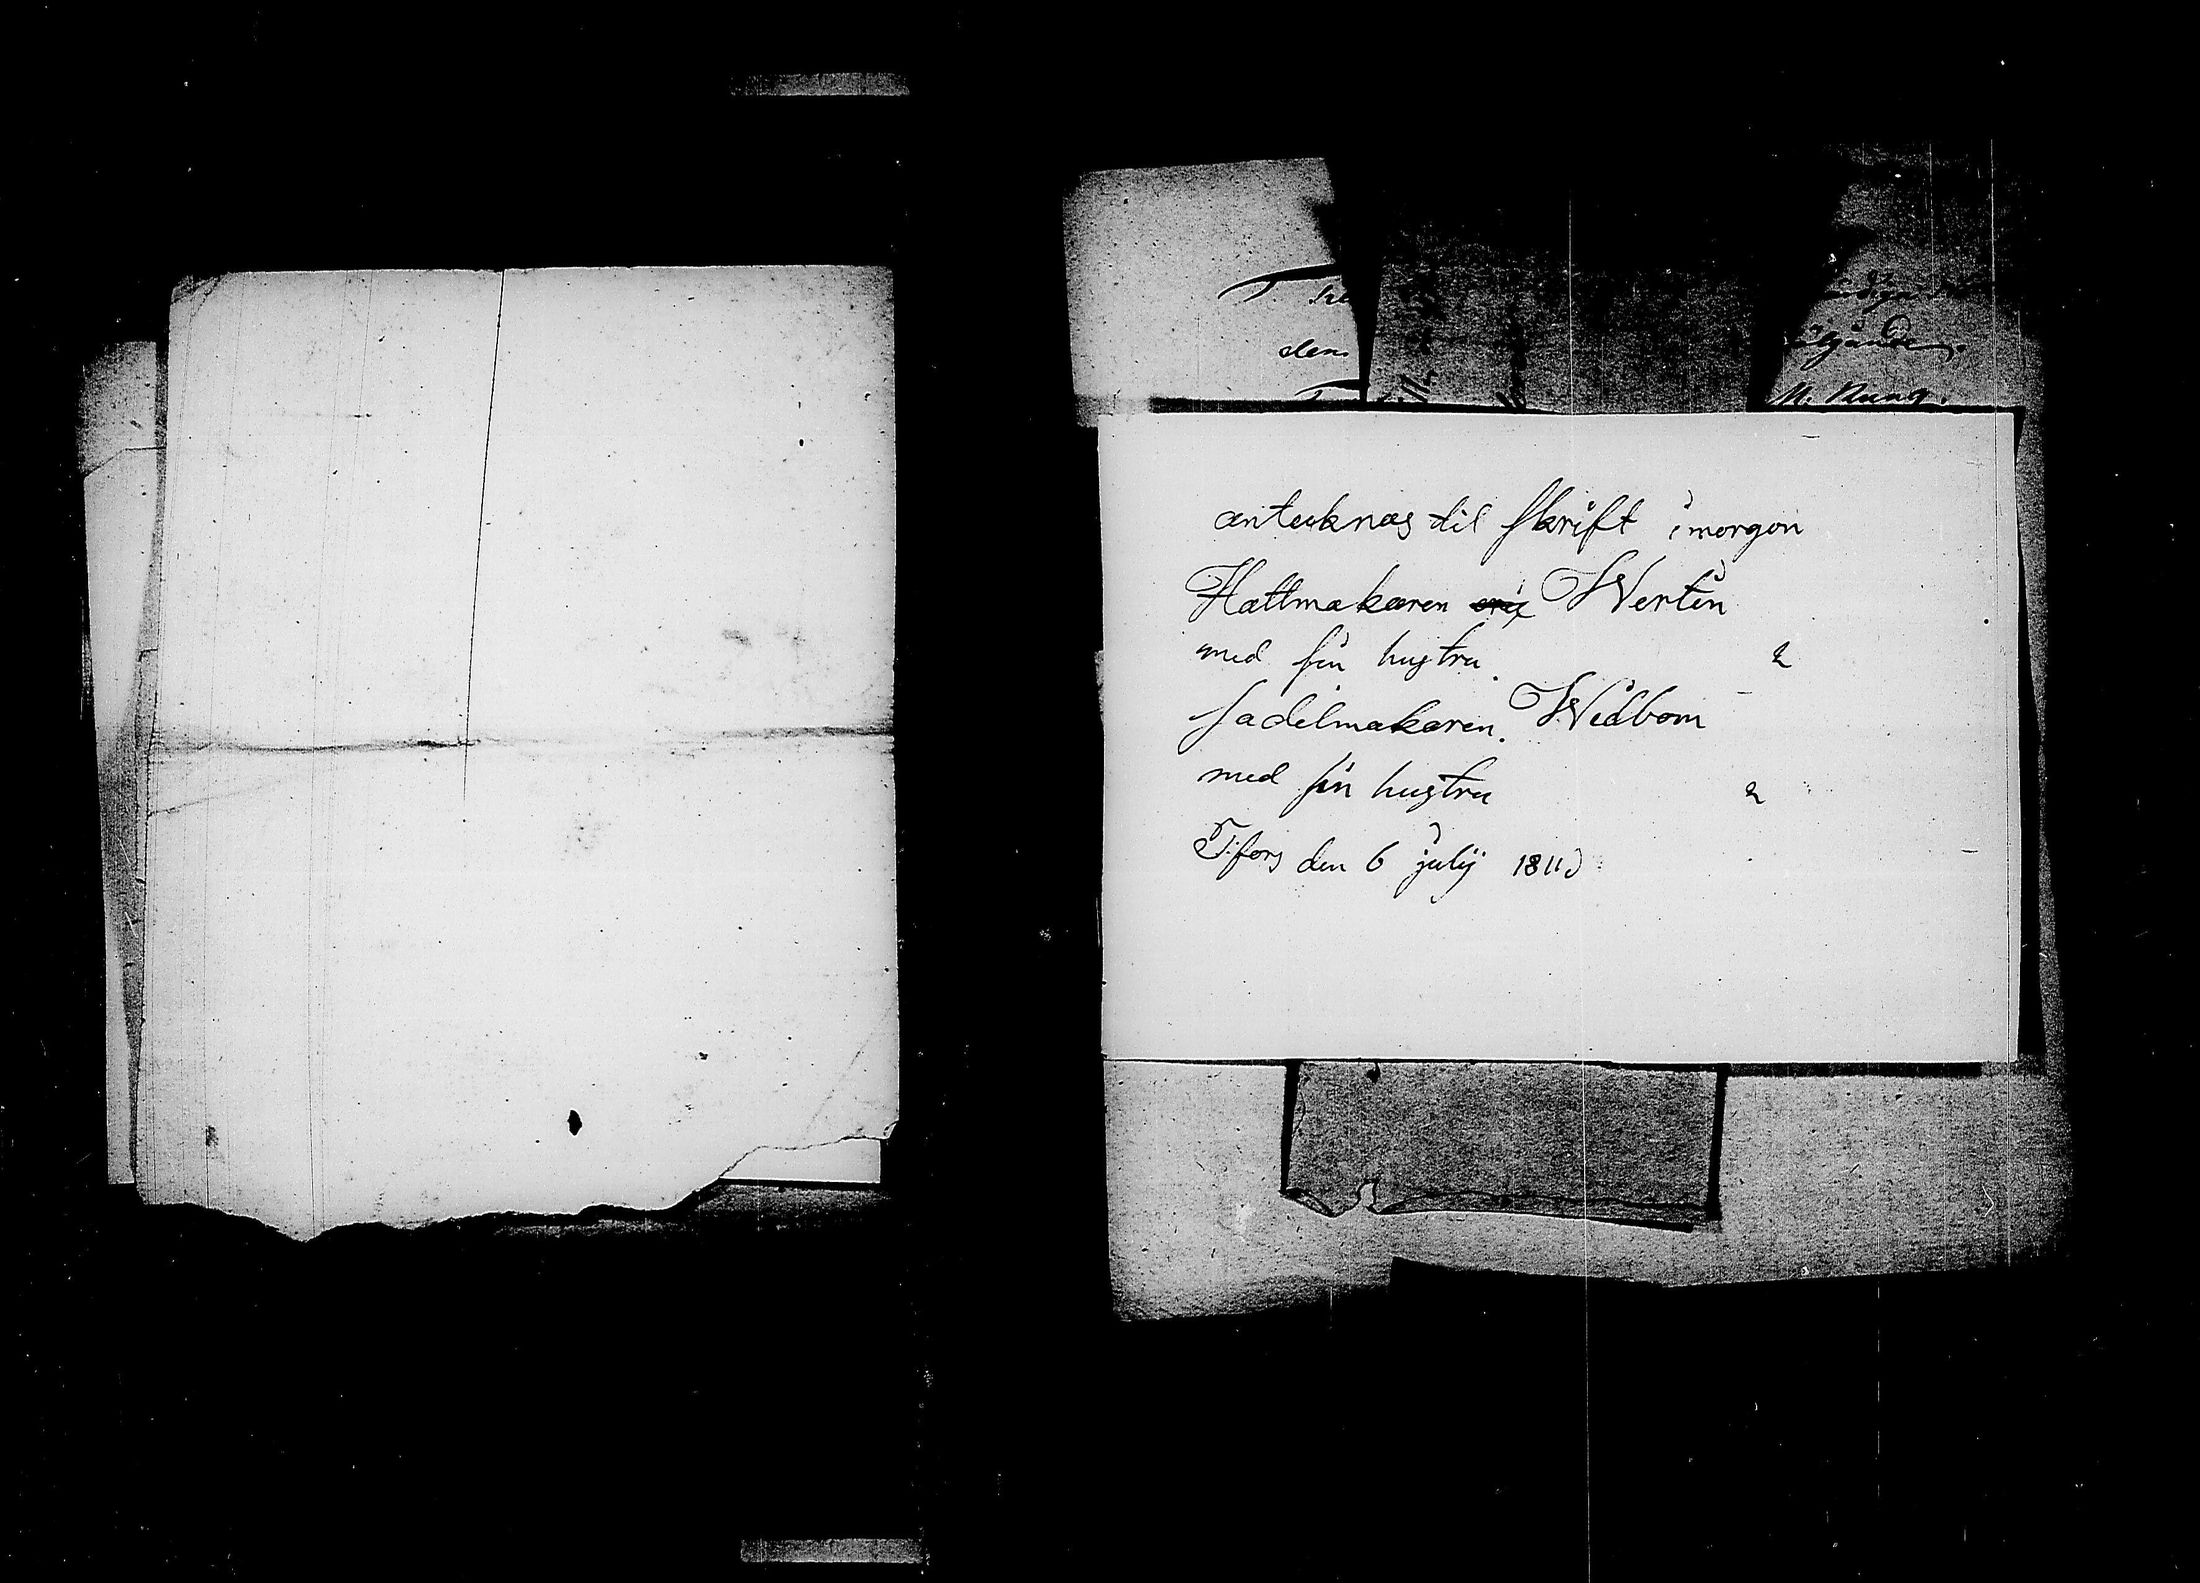 den
M. Nung.
anteknas til skrift i morgon
Hattmakaren Wertin
med sin hustru 2
sadelmakaren. Widbom
med sin hustru 2
T:fors den 6 julij 1811